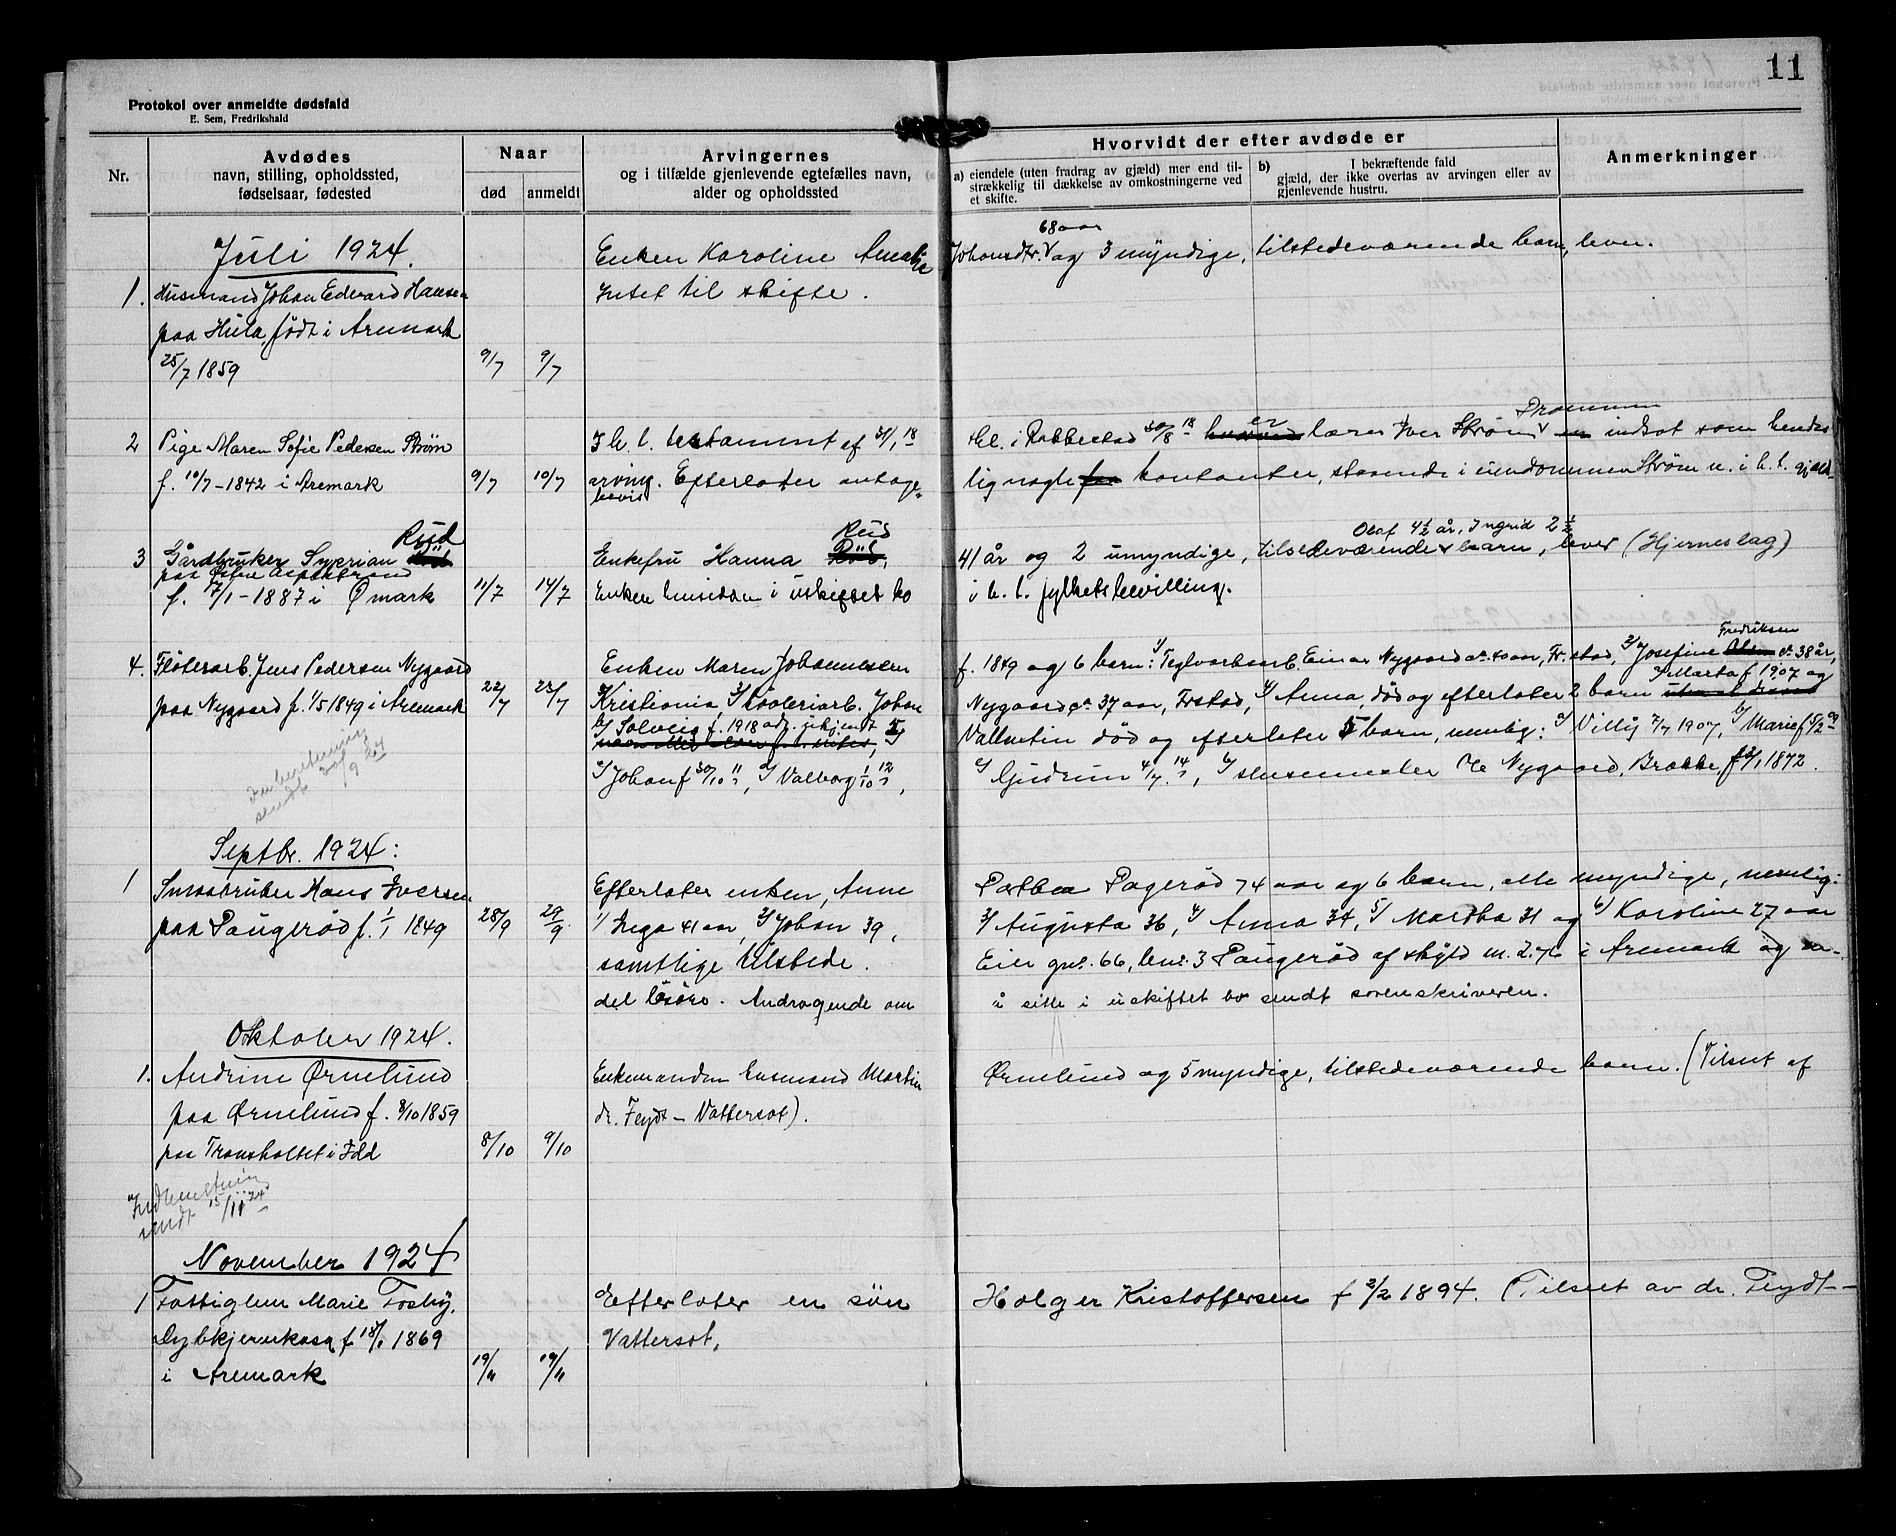 11
Protokol over anmeldte dødsfald
E. Sem, Fredrikshald
Nr.
Avdødes
navn, stilling, opholdssted,
fødselsaar, fødested
Naar
død
anmeldt
Arvingernes
og i tilfælde gjenlevende egtefælles navn,
alder og opholdssted
Hvorvidt der efter avdøde er
a) eiendele (uten fradrag av gjæld) mer end til-
strækkelig til dækkelse av omkostningerne ved
et skifte.
b) I bekræftende fald
gjæld, der ikke overtas av arvingen eller av
gjenlevende hustru.
Anmerkninger
Juli 1924.
1. Husmand Johan Edvard Hansen
paa Hula, født i Aremark
25/7 1859 9/7 9/7
Enken Karoline Amalie Johansdtr. 68 aar og 3 myndige, tilstedeværende barn, lever.
Intet til skifte.
2 Pige Maren Sofie Pedersen Strøm
f. 10/7-1842 i Aremark 9/7 10/7
I h. t. testammt af 31/1 18 tl. i Rakkestad 30/8 18 er lærer Iver Strøm indsat som hendes
arving. Efterlater antage-
lig nogle kontanter, staaende i eiendommen Strøm u. i h. t. gjælds-
bevis
3 Gårdbruker Syverian Rud
paa
f. 17/1-1887 i Ømark 11/7 14/7
Enkefru Hanna Rud 41 år og 2 umyndige, tilstedeværende barn, lever (Hjerneslag)
Olaf 4½ år, Ingrid 2½
Enken hensidden i uskiftet bo i h. t. fylketsbevilling.
4. Fløterarb. Jens Pedersen Nygaard
paa Nygaard f. 1/5 1849 i Aremark 22/7 23/7
Enken Maren Johannesen f. 1849 og 6 barn: 1/ Teglverksarb. Einar Nygaard ca. 40 aar, Fr.stad, 2/ Josefine Fredriksen ca. 38 år,
Kristiania, 3/ Johan Nygaard ca. 37 aar, Frstad, 4/ Anna, død og efterlater 2 barn Marta f 1907 og
b/ Solveig f. 1918 adr. ukjendt 5/ Vallentin død og efterlater 5 barn, nemlig: a/ Villy 7/7 1907, b/ Marie f 5/2 09
c/ Johan f 30/10 11, d/ Valborg 1/10 12, e/ Gudrun 4/7 14, 6/ slusemester Ole Nygaard, Brække, f 1872.
Indberetning
sendt 20/9 24
Septbr. 1924:
1 Smaabruker Hans Iversen
paa Paugerød f. 1/1 1849 28/9 29/9
Efterlater enken, Anne Paugerød 74 aar og 6 barn, alle myndige, nemlig:
1/ Inga 41 aar, 2/ Johan 39, 3/ Augusta 36, 4/ Anna 34, 5/ Martha 31 og 6/ Karoline 27 aar
samtlige tilstede. Eier gnr. 66, bnr. 3 Paugerød af skyld m. 2.76 i Aremark og en
del løsøre. Andragende om å sitte i uskiftet bo sendt sorenskriveren.
Oktober 1924.
1. Andrine Ørnelund
paa Ørnelund f. 8/10 1859
paa Transholtet i Idd 8/10 9/10
Enkemanden husmand Martin Ørnelund og 5 myndige, tilstedeværende barn. (Tilseet af
dr. Feydt - Vattersot).
Indberetning
sendt 15/11 24
November 1924
1 Fattiglem Marie Fosby,
Dybkjernkasa f 18/1 1869
i Aremark 19/11 19/11
Efterlater en sön Holger Kristoffersen f 3/2 1894. (Tilseet av dr. Feydt-
Vattersot.